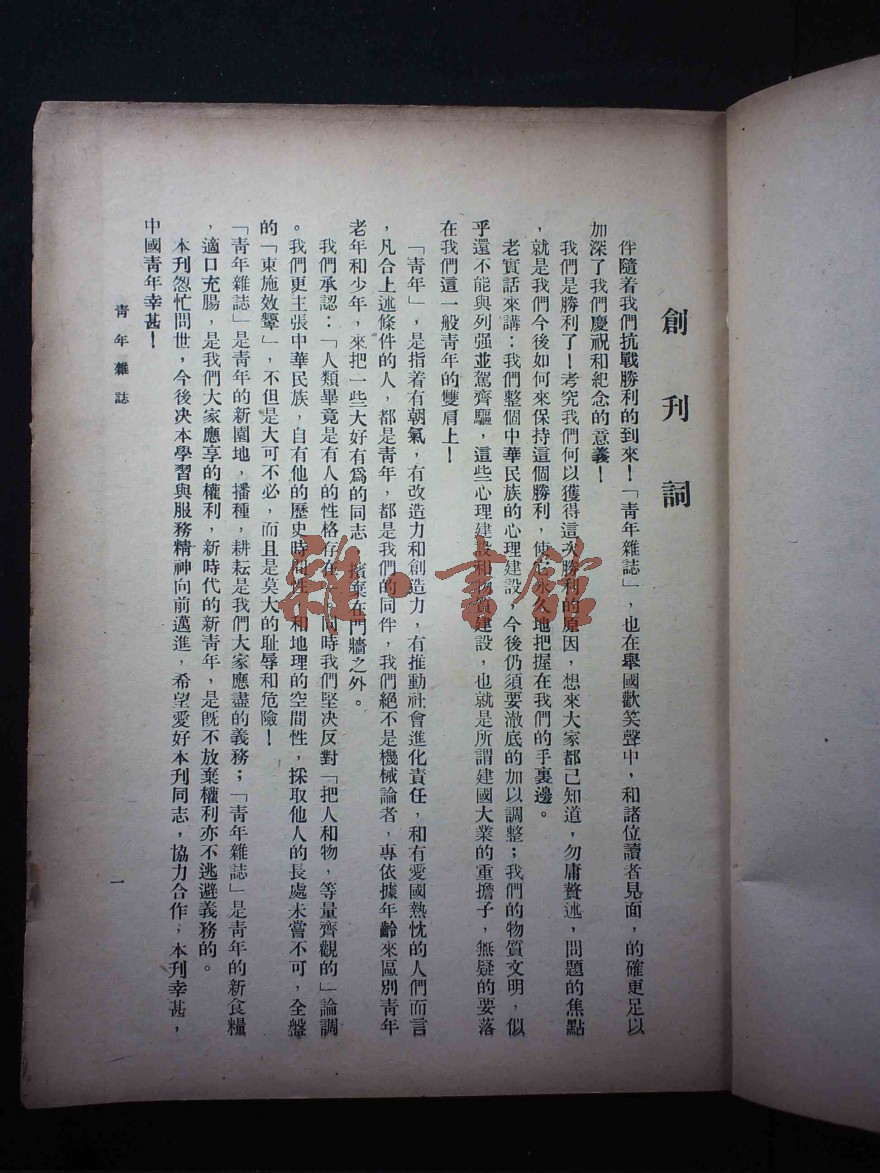 創刊詞
伴隨着我們抗戰勝利的到來！「青年雜誌」，也在舉國歡笑聲中，和諸位讀者見面，的確更足以
加深了我們慶祝和紀念的意義！
我們是勝利了！考究我們何以獲得這次勝利的原因，想來大家都已知道，勿庸贅述，問題的焦點
，就是我們今後如何來保持這個勝利，使它永久地把握在我們的手裏邊。
老實話來講：我們整個中華民族的心理建設，今後仍須要澈底的加以調整；我們的物質文明，似
乎還不能與列强並駕齊驅，這些心理建設和物質建設，也就是所謂建國大業的重擔子，無疑的要落
在我們這一般青年的雙肩上！
「青年」，是指着有朝氣，有改造力和創造力，有推動社會進化責任，和有愛國熱忱的人們而言
，凡合上述條件的人，都是青年，都是我們的同伴，我們絕不是機械論者，專依據年齡來區別青年
老年和少年，來把一些大好有爲的同志，擯棄在門牆之外。
我們承認：「人類畢竟是有人的性格存在」同時我們堅决反對「把人和物，等量齊觀的」論調
。我們更主張中華民族，自有他的歷史時間性，和地理的空間性，採取他人的長處未嘗不可，全盤
的「東施效顰」，不但是大可不必，而且是莫大的耻辱和危險！
「青年雜誌」是青年的新園地，播種，耕耘是我們大家應盡的義務；「青年雜誌」是青年的新食糧
，適口充腸，是我們大家應享的權利，新時代的新青年，是旣不放棄權利亦不逃避義務的。
本刊怱忙問世，今後决本學習與服務精神向前邁進，希望愛好本刊同志，協力合作，本刊幸甚，
中國青年幸甚！
青年雜誌
一
雜·書館